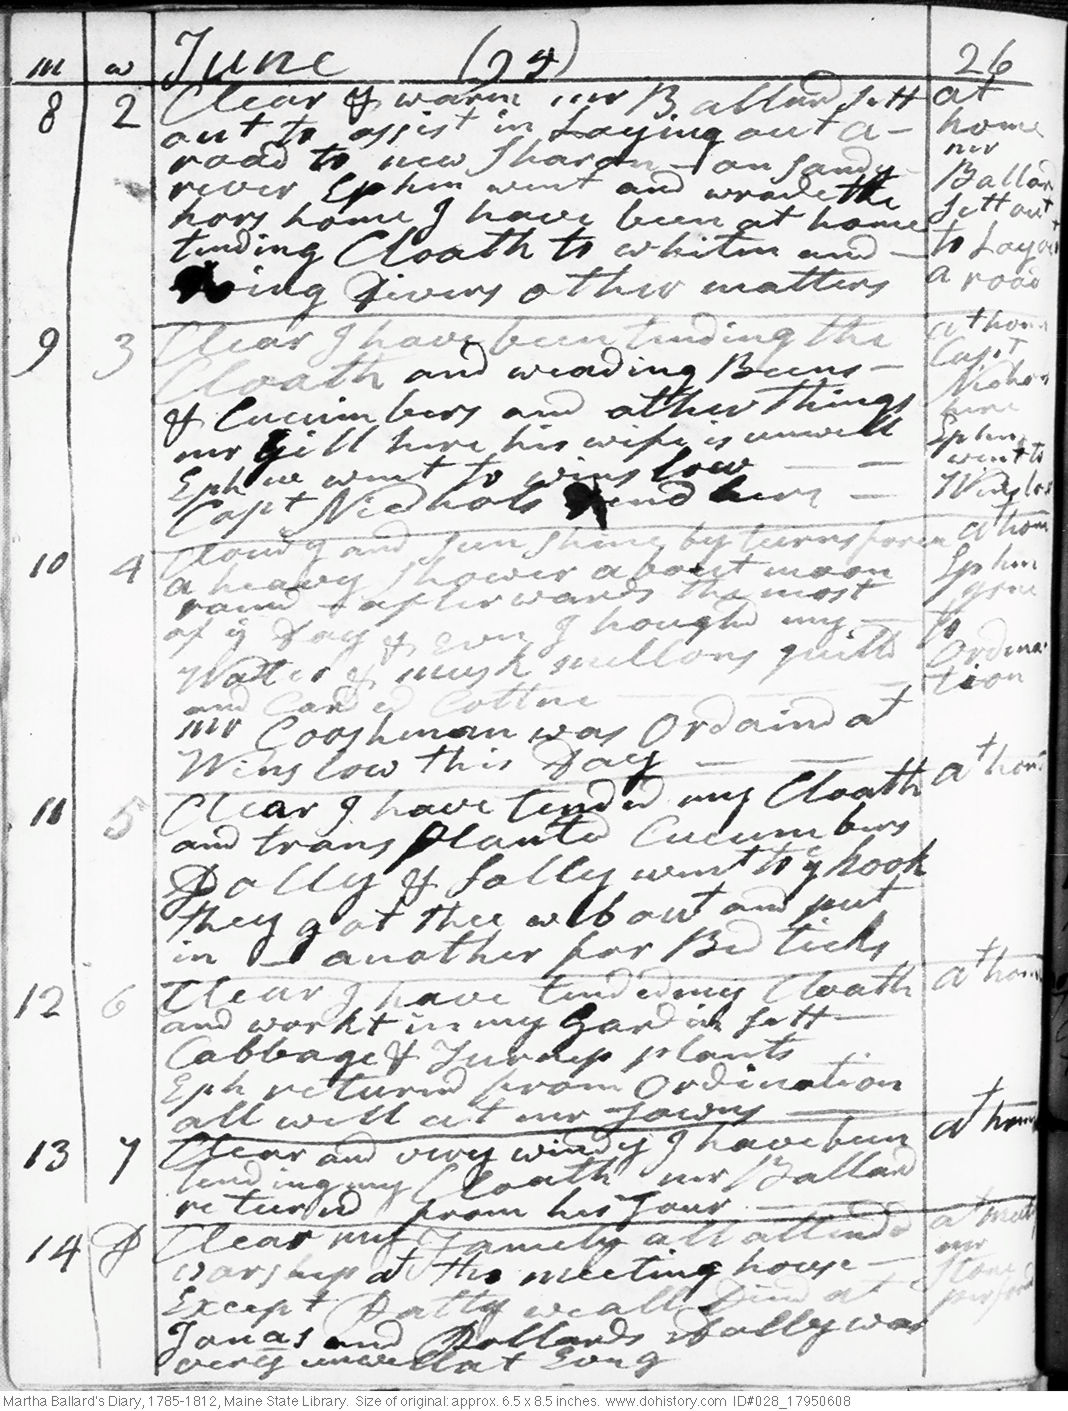 m w June (24) 26
8 2 Clear & warm mr Ballard sett
out to assist in Laying out a-
road to new Sharon - on Sandy
river Ephm went and wrode the
hors home I have been at home
tending Cloath to whitn and -
ing Divers other matters
at
home
mr
Ballard
sett out
to Lay out
a road
9 3 Clear I have been tending the
Cloath and weading Beens -
& Cucumbers and other things
mr Gill here his wife is unwell
Eph we went to wins low
Capt Nichols here
at home
Capt
Nichols
here
Ephm
went to
Winslow
10 4 Cloudy and sun shine by turns from
a heavy Shower about noon
round - afterwards the most
of ye Day & Evn I houghd my -
Water & musk mellons quilld
and Carded Cottne
mr Cooshman was Ordaind at
Wins low this Day
at home
Ephm
gone
to
Ordina
tion
11 5 Clear I have tended my Cloath
and trans planted Cucumbers
Dolly & Sally went to ye hook
they got thee web out and put
in - another for Bed ticks
at home
12 6 Clear I have tended my Cloath
and workt in my Gardin sett -
Cabbage & Turnip plants
Eph returnd from Ordination
all well at mr Towns
at home
13 7 Clear and very windy I have been
tending my Cloath mr Ballard
returnd from his Tour
at home
14 D Clear my Family all attend
worship at the meeting house -
Except Dolly we all Dind at
Jonas and Pollards Dolly was
very unwell at Evng
at meetg
mr
Stone
performd
Martha Ballard's Diary, 1785-1812, Maine State Library. Size of original: approx. 6.5 x 8.5 inches. www.dohistory.com ID#028_17950608